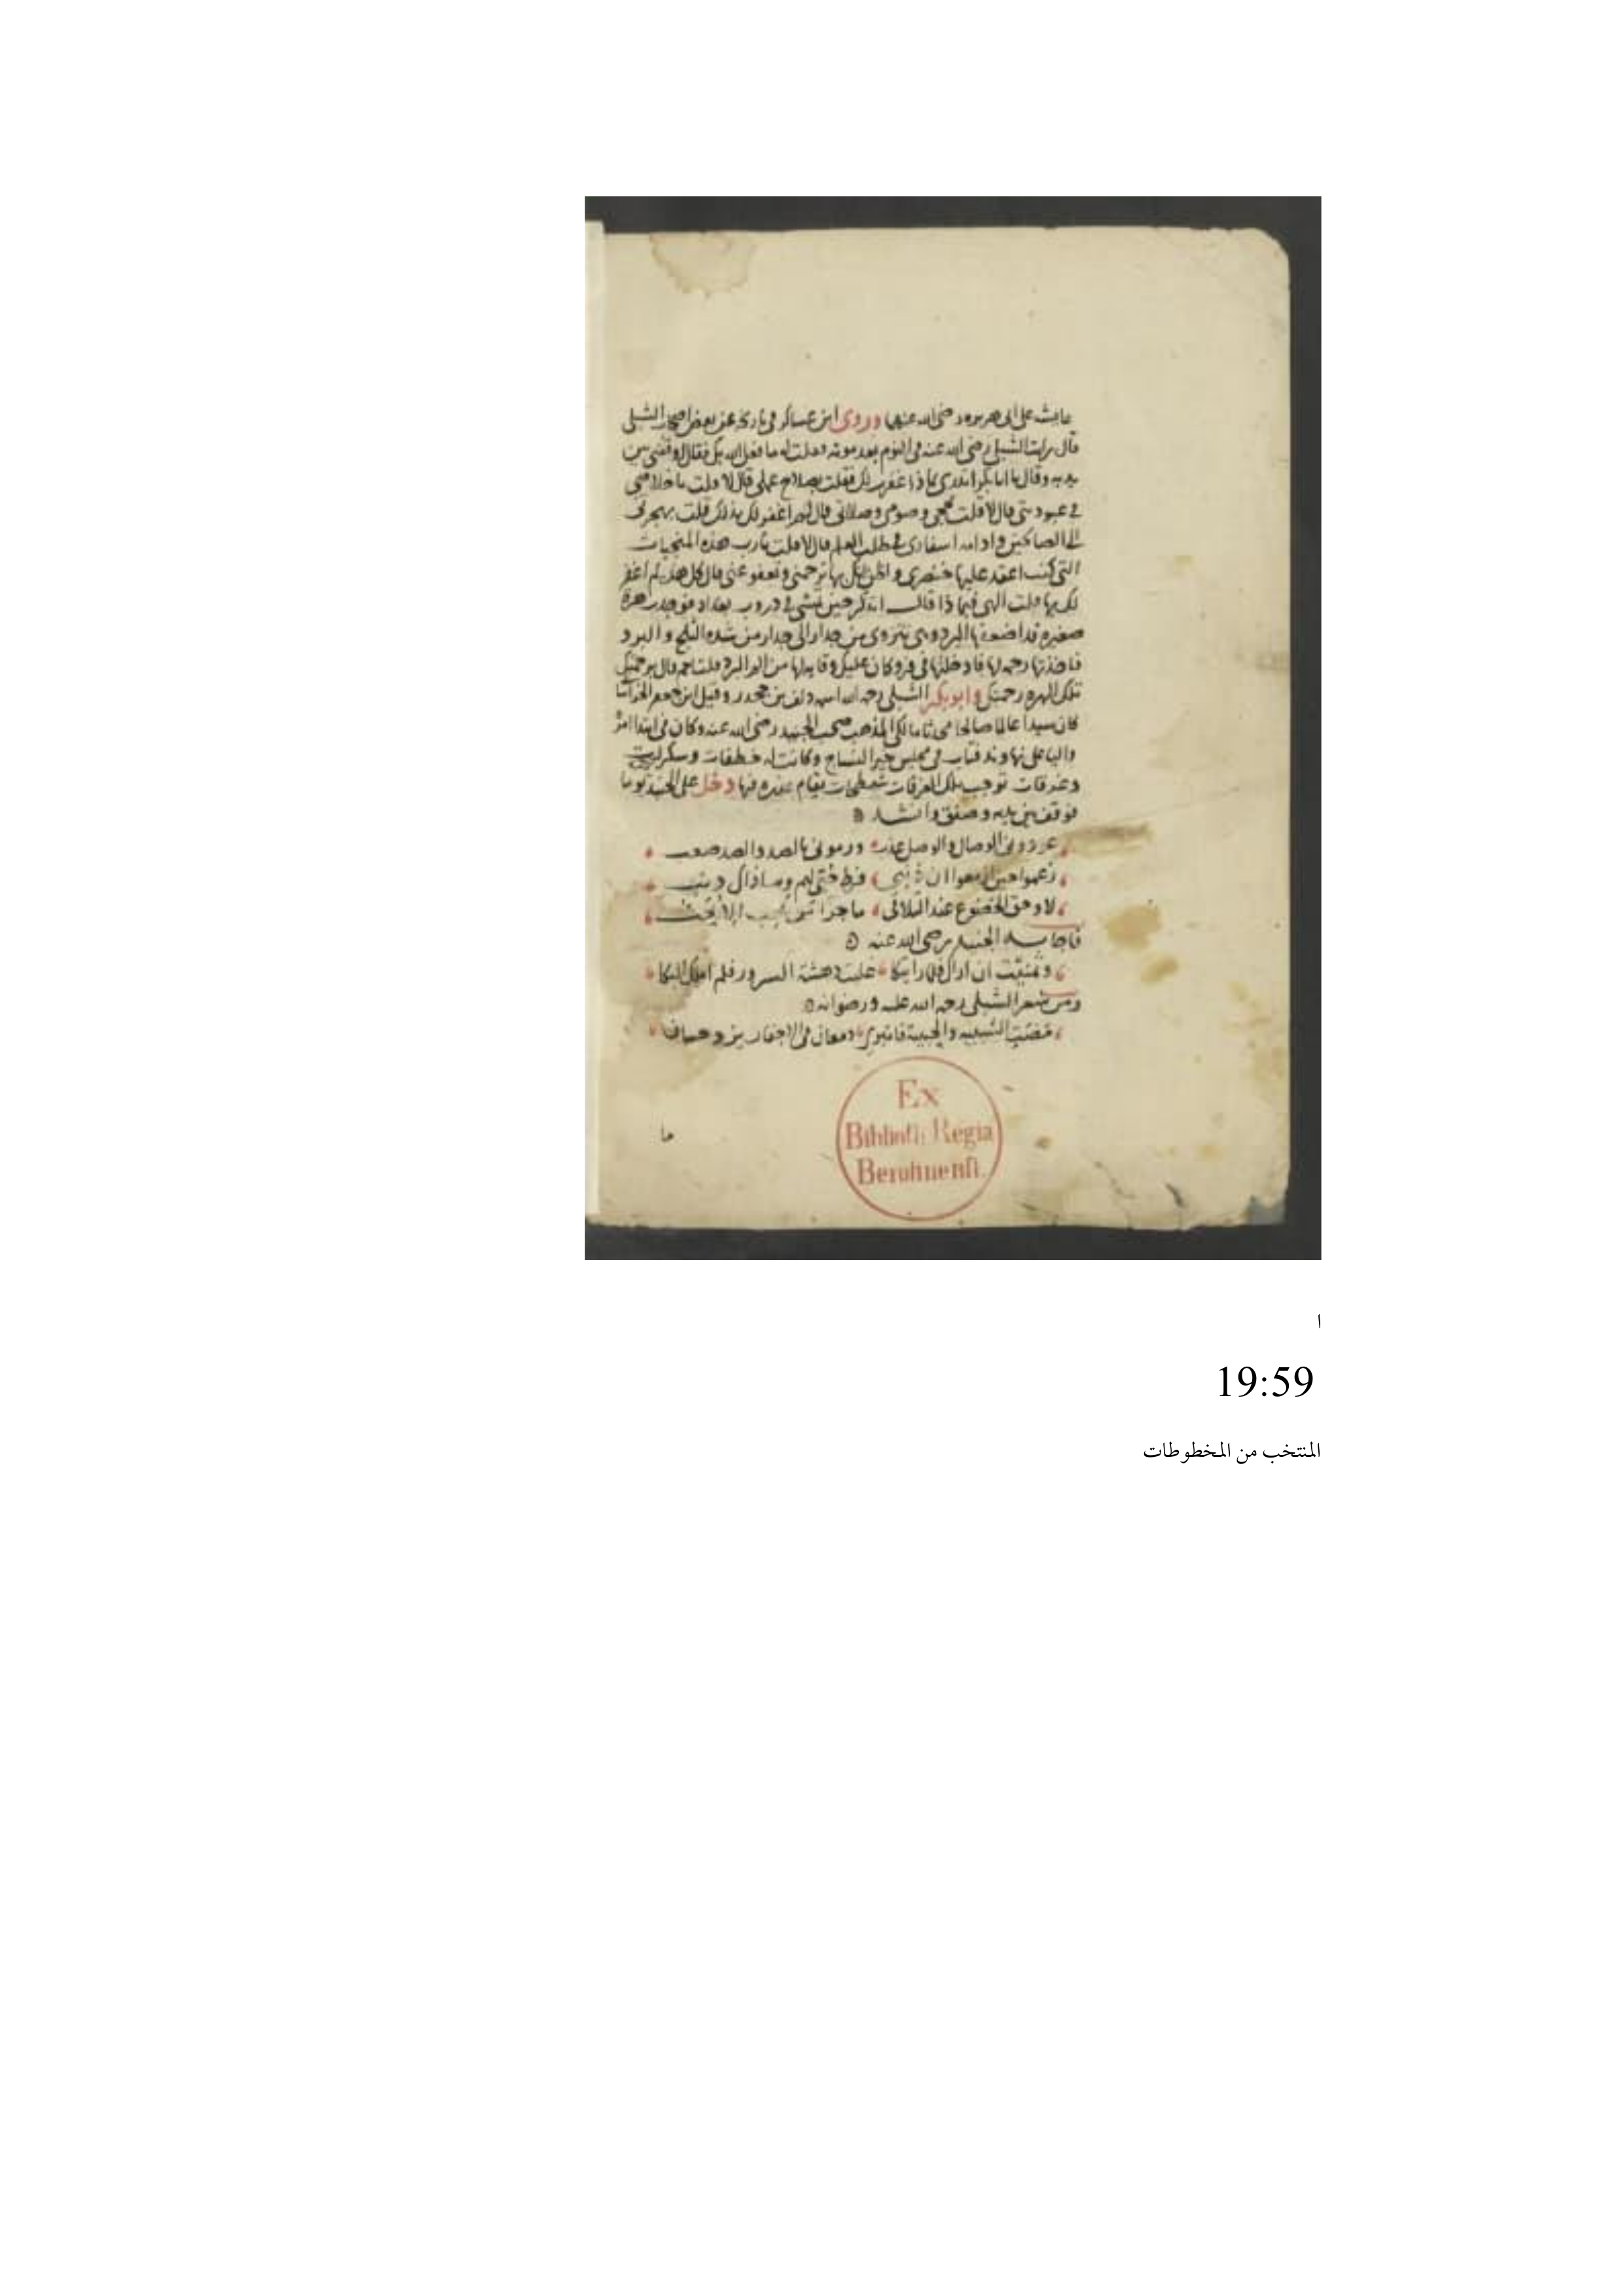 عايشة على ابى هريره رضى الله عنهما وروى ابن عساكر فى تاريخه عن بعض اصحاب الشبلى
قال رايت الشبلى رضى الله عنه فى النوم بعد موته فقلت له ما فعل الله بك فقال اوقفنى بين
يديه وقال يا ابا بكر اتدرى بماذا غفرت لك فقلت بصالح عملى قال لا قلت باخلاصى
فى عبوديتى قال لا قلت بحجى وصومى وصلاتى قال لم اغفر لك بذلك قلت بهجرتى
الى الصالحين وادامة اسفارى فى طلب العلم قال لا قلت يارب هذه المنجيات
التى كنت اعقد عليها خنصرى وظنى انك بها ترحمنى وتعفو عنى قال كل هذه لم اغفر
لك بها قلت الهى فبماذا قال اتذكر حين تمشى فى دروب بغداد فوجدت هرة
صغيره قد اضعفها البرد وهى تنزوى من جدار الى جدار من شده الثلج والبرد
فاخذتها رحمه لها فادخلتها فى فرو كان عليك وقايه لها من الم البرد قلت نعم قال برحمتك
تلك الهره رحمتك وابو بكر الشبلى رحمه الله اسمه دلف بن جحدر وقيل ابن جعفر
كان سيدا عالما صالحا مالكى المذهب صحب الجنيد رضى الله عنه وكان فى ابتدا امره
واليا على نهاوند فتاب فى مجلس خير النساج وكانت له خطفات وسكرات
وغرقات توجب تلك الغرقات شطحات يقام عذره فيها دخل على الجنيد يوما
فوقف بين يديه وصفق وانشد
عودونى الوصال والوصل عذب ورمونى بالصد والصد صعب
زعموا حين ازمعوا ان ذنبى فرط حبى لهم وما ذاك ذنب
لا وحق الخضوع عند التلاقى ما جزا من يحب الا يحب
فاجابه الجنيد رضى الله عنه
وتمنيت ان اراك فلما رايتكا غلبت دهشة السرور فلم املك البكا
ومن شعر الشبلى رحمه الله عليه ورضوانه
مضت الشبيبه والحبيبة فانبرى دمعان فى الاجفان يزدحمان
ما
Ex
Biblioth. Regia
Berolinensi.
ا
19:59
المنتخب من المخطوطات